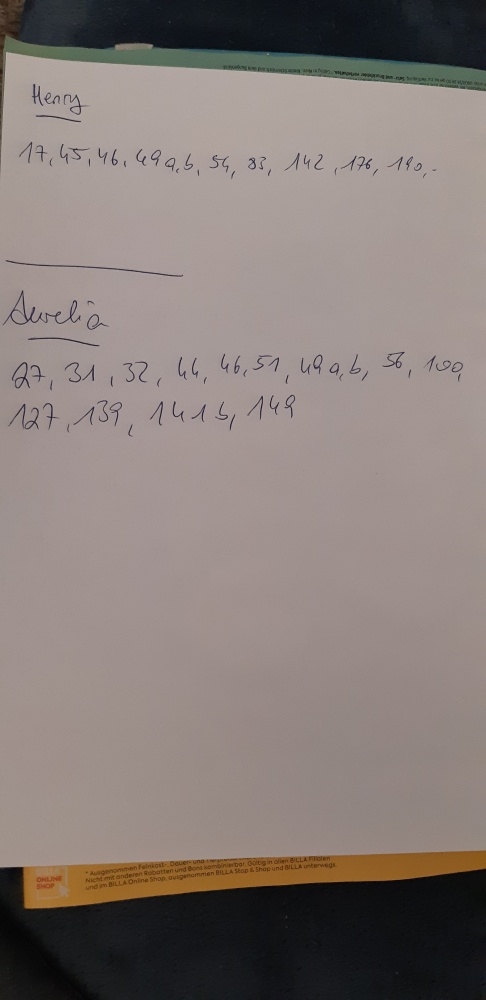 Henry
17, 45, 46, 49 a, b, 54, 83, 142, 176, 190,-
Aurelia
27, 31, 32, 44, 46, 51, 49 a, b, 56, 100,
127, 139, 141 b, 149
ONLINE
SHOP
* Ausgenommen Feinkost-, Dauer- und
Nicht mit anderen Rabatten und Bons kombinierbar. Gültig in allen BILLA Filialen
und im BILLA Online Shop, ausgenommen BILLA Stop & Shop und BILLA unterwegs.